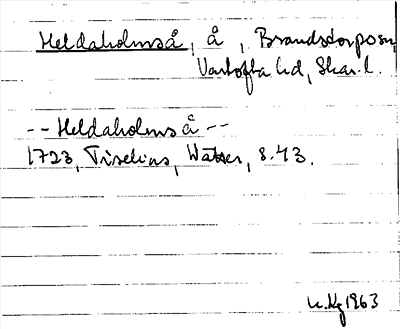 Heldaholmså, å, Brandstorpssn,
Vartofta hd, Skar. l.
-- Heldaholmså --
1723, Tiselius, Wätter, s. 43.
1963